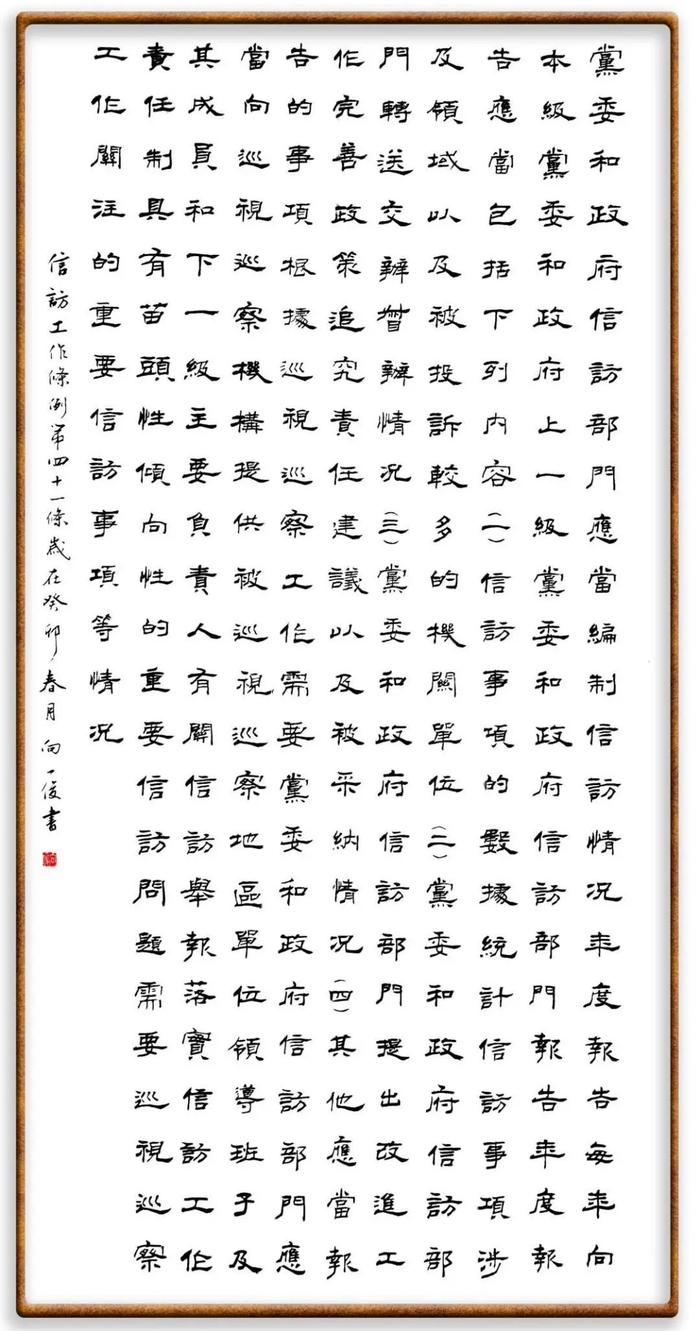 黨委和政府信訪部門應當編制信訪情况年度報告每年向
本級黨委和政府上一級黨委和政府信訪部門報告年度報
告應當包括下列内容(一)信訪事項的數據統計信訪事項涉
及領域以及被投訴較多的機關單位(二)黨委和政府信訪部
門轉送交辦督辦情况(三)黨委和政府信訪部門提出改進工
作完善政策追究責任建議以及被采納情况(四)其他應當報
告的事項根據巡視巡察工作需要黨委和政府信訪部門應
當向巡視巡察機構提供被巡視巡察地區單位領導班子及
其成員和下一級主要負責人有關信訪舉報落實信訪工作
責任制具有苗頭性傾向性的重要信訪問題需要巡視巡察
工作關注的重要信訪事項等情况
信訪工作條例第四十一條歲在癸卯春月向一俊書